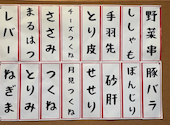 野菜串
ししゃも
手羽先
とり皮
チーズつくね
ささみ
まるはつ
レバー
豚バラ
ぼんじり
砂肝
せせり
月見つくね
つくね
とりみ
ねぎま